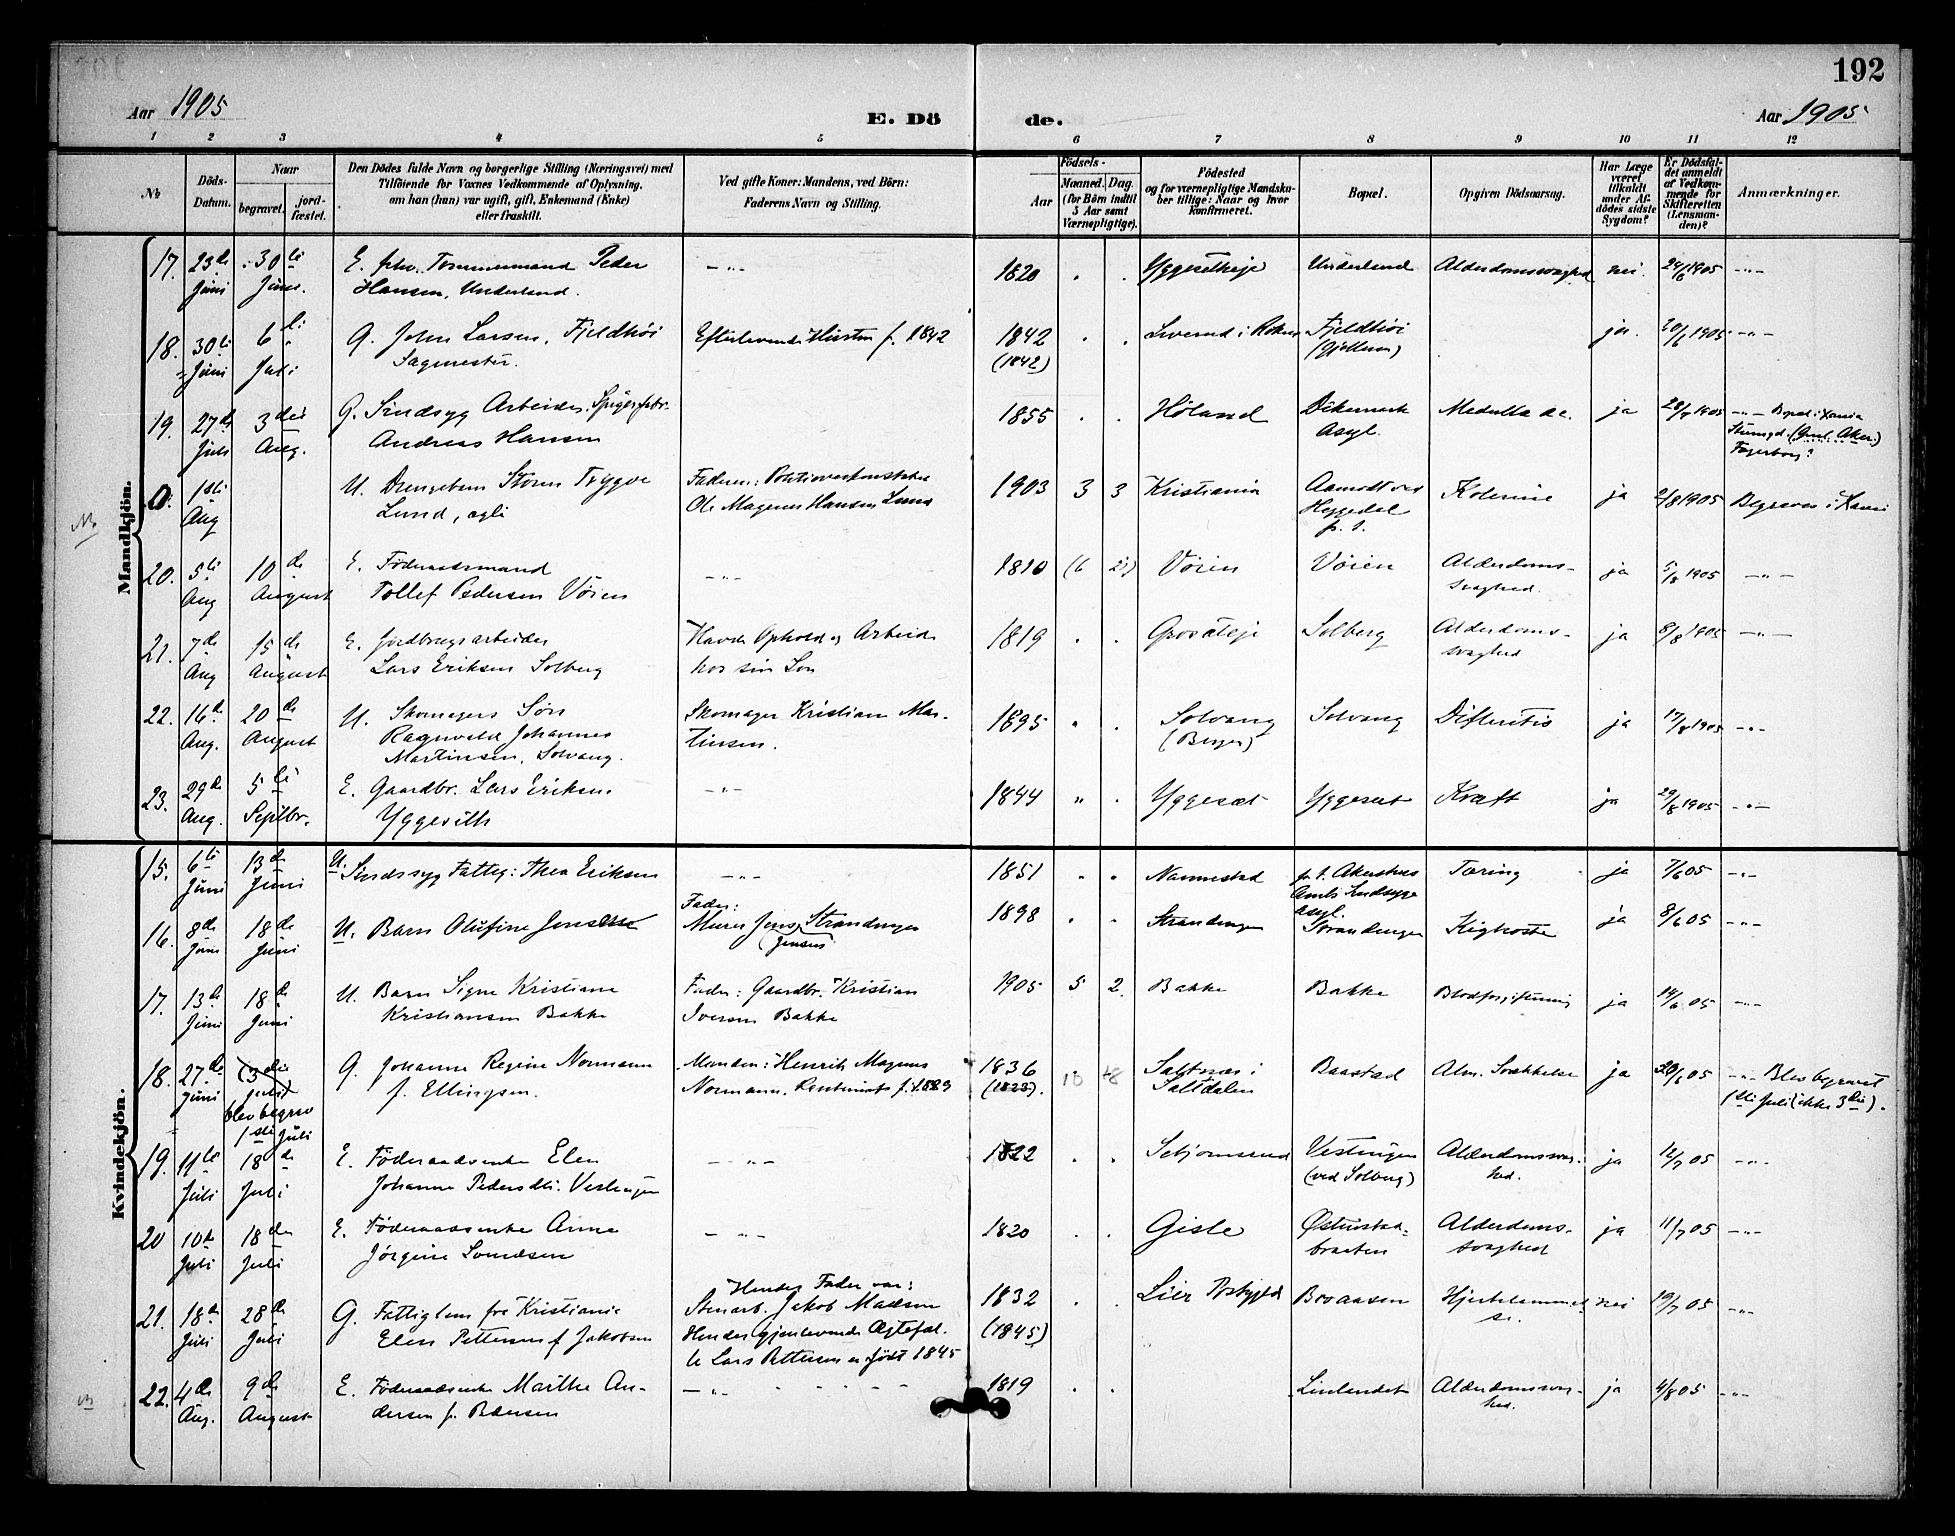 192
Aar 1905
E. Dö
de.
Aar 1905
1 2 3 4 5 6 7 8 9 10 11 12
No
Döds-
Datum.
Naar
begravet.
jord-
fæstet.
Den Dödes fulde Navn og borgerlige Stilling (Næringsvei) med
Tilföiende for Voxnes Vedkommende af Oplysning,
om han (hun) var ugift, gift, Enkemand (Enke)
eller fraskilt.
Ved gifte Koner: Mandens, ved Börn:
Faderens Navn og Stilling.
Födsels-
Aar
Maaned. Dag.
(for Börn indtil
5 Aar samt
Værnepligtige).
Födested
og for værnepligtige Mandska-
ber tillige: Naar og hvor
konfirmeret.
Bopæl.
Opgiven Dödsaarsag.
Har Læge
været
tilkaldt
under Af-
dödes sidste
Sygdom?
Er Dödsfal-
det anmeldt
af Vedkom-
mende for
Skifteretten
(Lensman-
den)?
Anmærkninger.
Mandkjön.
17. 23de Juni 30te Juni. E. fhv. Tømmermand Peder
Hansen, Underlend. -"- 1820 Yggesetheje Underlend Alderdomssvaghed nei. 24/6 1905 -"-
18. 30te Juni 6te Juli G. John Larsen, Fjeldhöi
Sagmester. Efterlevende Hustru f. 1842 1842
(1842) i Røken Fjeldhöi
(Gjellum) ja. 1905 -"-
19. 27de Juli 3die Aug. G. Sindsyg Arbeider
Andreas Hansen 1855 Høland Dikemark
Asyl. Medulla ja 28/7 1905 -"- Bopæl i Xania
Fagerborg?
0. 1ste Aug U. Drengebarn Storm Trygve
Lund, Faderen: Politioverkonstabel
Ole Magenus Hansen Lund 1903 3 3 Kristiania Aamodt ved
Heggedal
p. t. Kolerine ja 2/8 1905 Begraves i Xania
20. 5te Aug 10de August E. Föderaadsmand
Tollef Pedersen Vöien -"- 1810 (6 2) Vöien Vöien Alderdoms-
svaghed. ja 5/8 1905 -"-
21. 7de Aug 15de August E. Jordbrugsarbeider
Lars Eriksen Solberg Havde Ophold og Arbeide
hos sin Søn 1819 Solberg Alderdoms-
svaghed ja 8/8 1905 -"-
22. 16de Aug. 20de August U. Skomagers Søn
Ragnvald Johannes
Martinsen, Solvang. Skomager Kristian Mar-
tinsen. 1895 Solvang
(Berger) Solvang Difteritis ja 17/8 1905 -"-
23. 29de Aug. 5te Septbr. E. Gaardbr. Lars Eriksen
Yggesæth -"- 1844 Yggesæt Yggesæt Kræft ja 29/8 1905 -"-
Kvindekjön.
15. 6te Juni 13de Juni U. Sindssyg Fattig: Thea Eriksen -"- 1851 Nannestad p. t. Akershus
Amts Sindsyge
asyl. Tæring ja 7/6 05 -"-
16. 8de Juni 18de Juni U. Barn Olufine Jensen Fader:
Murer Jens Strandengen
(Jensen) 1898 Strandengen Strandengen Kighoste ja 8/6 05 -"-
17. 13de Juni 18de Juni U. Barn Signe Kristiane
Kristiansen Bakke Fader: Gaardbr. Kristian
Iversen Bakke 1905 5 2. Bakke Bakke Blodforgiftning ja 14/6 05 -"-
18. 27de Juni (3die Juli)
blev begrav
1ste Juli G. Johanne Regine Normann
f. Ellingsen. Manden: Henrik Magnus
Normann, 1836
(1823). 10 18 Saltnæs i
Saltdalen Baastad Alm. Svækkelse ja 28/6 05 -"- Blev begravet
1ste Juli (ikke 3die).
19. 11te Juli 18de Juli E. Föderaadsenke Elen
Johanne Pedersdtr. Vestengen -"- 1822 Vestengen
(ved Solberg) Alderdomssvag-
hed. ja 12/7 05 -"-
20 10de Juli 18de Juli E. Föderaadsenke Anne
Jörgine -"- 1820 Gisle Alderdoms-
svaghed ja 11/7 05 -"-
21. 18de Juli 28de Juli G. Fattiglem fra Kristiania
Elen Pettersen f. Jakobsen Hendes Fader var:
Stenarb. Jakob Madsen
Hendes gjenlevende Ægtefæl-
le Lars Pettersen er født 1845 1832
(1845) Lier Braasen nei 19/7 05 -"-
22. 4de Aug. 9de August E. Föderaadsenke Marthe An-
dersen f. Pedersen -"- 1819 Linlandet Alderdomssvag-
hed. ja 4/8 05 -"-